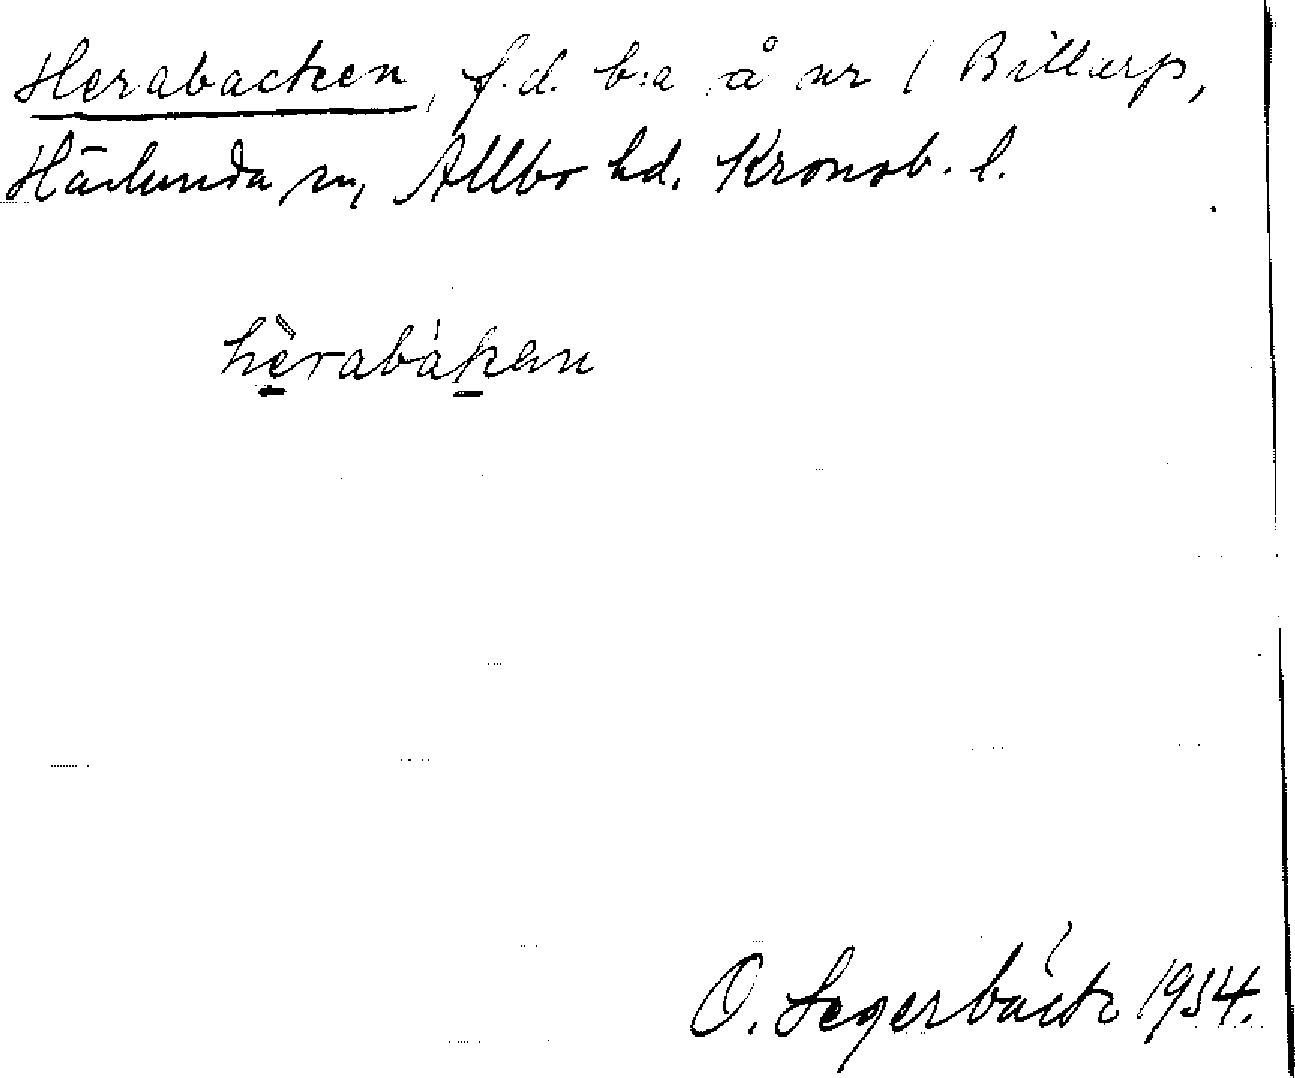 Herabacken, f.d. b:a å nr 1 Billarp,
Härlunda sn, Allbo hd. Kronob. l.
hèrabákan
O. Segerbäck 1934.